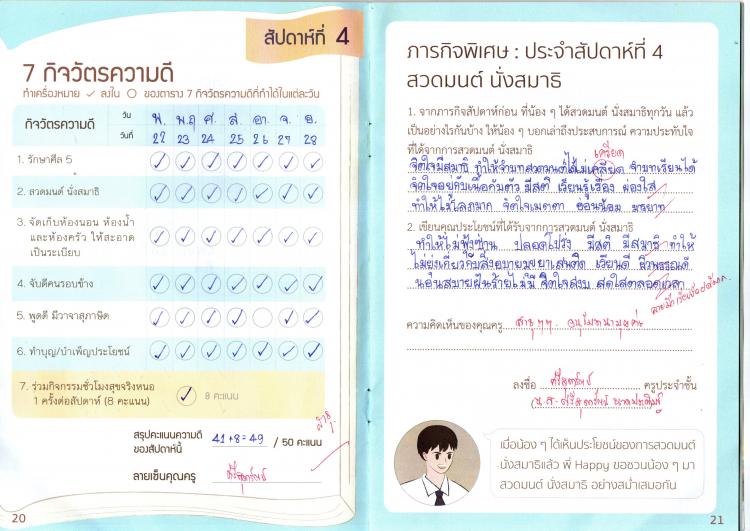 สัปดาห์ที่ 4
7 กิจวัตรความดี
ทำเครื่องหมาย ✓ ลงใน ○ ของตาราง 7 กิจวัตรความดีที่ทำได้ในแต่ละวัน
กิจวัตรความดี
วัน พ. พฤ ศ. ส. อา. จ. อ.
วันที่ 22 23 24 25 26 27 28
1. รักษาศีล 5 ✓ ✓ ✓ ✓ ✓ ✓ ✓
2. สวดมนต์ นั่งสมาธิ ✓ ✓ ✓ ✓ ✓ ✓ ✓
3. จัดเก็บห้องนอน ห้องน้ำ
และห้องครัว ให้สะอาด ✓ ✓ ✓ ✓ ✓ ✓ ✓
เป็นระเบียบ
4. จับดีคนรอบข้าง ✓ ✓ ✓ ✓ ✓ ✓ ✓
5. พูดดี มีวาจาสุภาษิต ✓ ✓ ✓ ✓ ○ ✓ ✓
6. ทำบุญ/บำเพ็ญประโยชน์ ✓ ✓ ✓ ✓ ✓ ✓ ✓
7. ร่วมกิจกรรมชั่วโมงสุขจริงหนอ
1 ครั้งต่อสัปดาห์ (8 คะแนน) ✓ 8 คะแนน
สรุปคะแนนความดี
ของสัปดาห์นี้ 41+8=49 / 50 คะแนน
ลายเซ็นคุณครู
20
ภารกิจพิเศษ : ประจำสัปดาห์ที่ 4
สวดมนต์ นั่งสมาธิ
1. จากภารกิจสัปดาห์ก่อน ที่น้อง ๆ ได้สวดมนต์ นั่งสมาธิทุกวัน แล้ว
เป็นอย่างไรกันบ้าง ให้น้อง ๆ บอกเล่าถึงประสบการณ์ ความประทับใจ
ที่ได้จากการสวดมนต์ นั่งสมาธิ
เครียด
จิตใจมีสมาธิ ทำให้จำบทสวดมนต์ได้ไม่เคลียด จำบทเรียนได้
จิตใจอยู่กับเนื้อกับตัว มีสติ เรียนรู้เรื่อง ผ่องใส
ทำให้ไม่โลภมาก จิตใจเมตตา อ่อนน้อม มรยาท
2. เขียนคุณประโยชน์ที่ได้รับจากการสวดมนต์ นั่งสมาธิ
ทำให้ไม่ฟุ้งซ่าน ปลอดโปร่ง มีสติ มีสมาธิ ทำให้
ไม่ยุ่งเกี่ยวกับสิ่งอบายมุขยาเสพติด เรียนดี ผิวพรรณดี
นอนสบายฝันร้ายไม่มี จิตใจสงบ สดใสตลอดเวลา
ความคิดเห็นของคุณครู สาธุ ๆ ๆ
ลงชื่อ ครูประจำชั้น
เมื่อน้อง ๆ ได้เห็นประโยชน์ของการสวดมนต์
นั่งสมาธิแล้ว พี่ Happy ขอชวนน้อง ๆ มา
สวดมนต์ นั่งสมาธิ อย่างสม่ำเสมอกัน
21